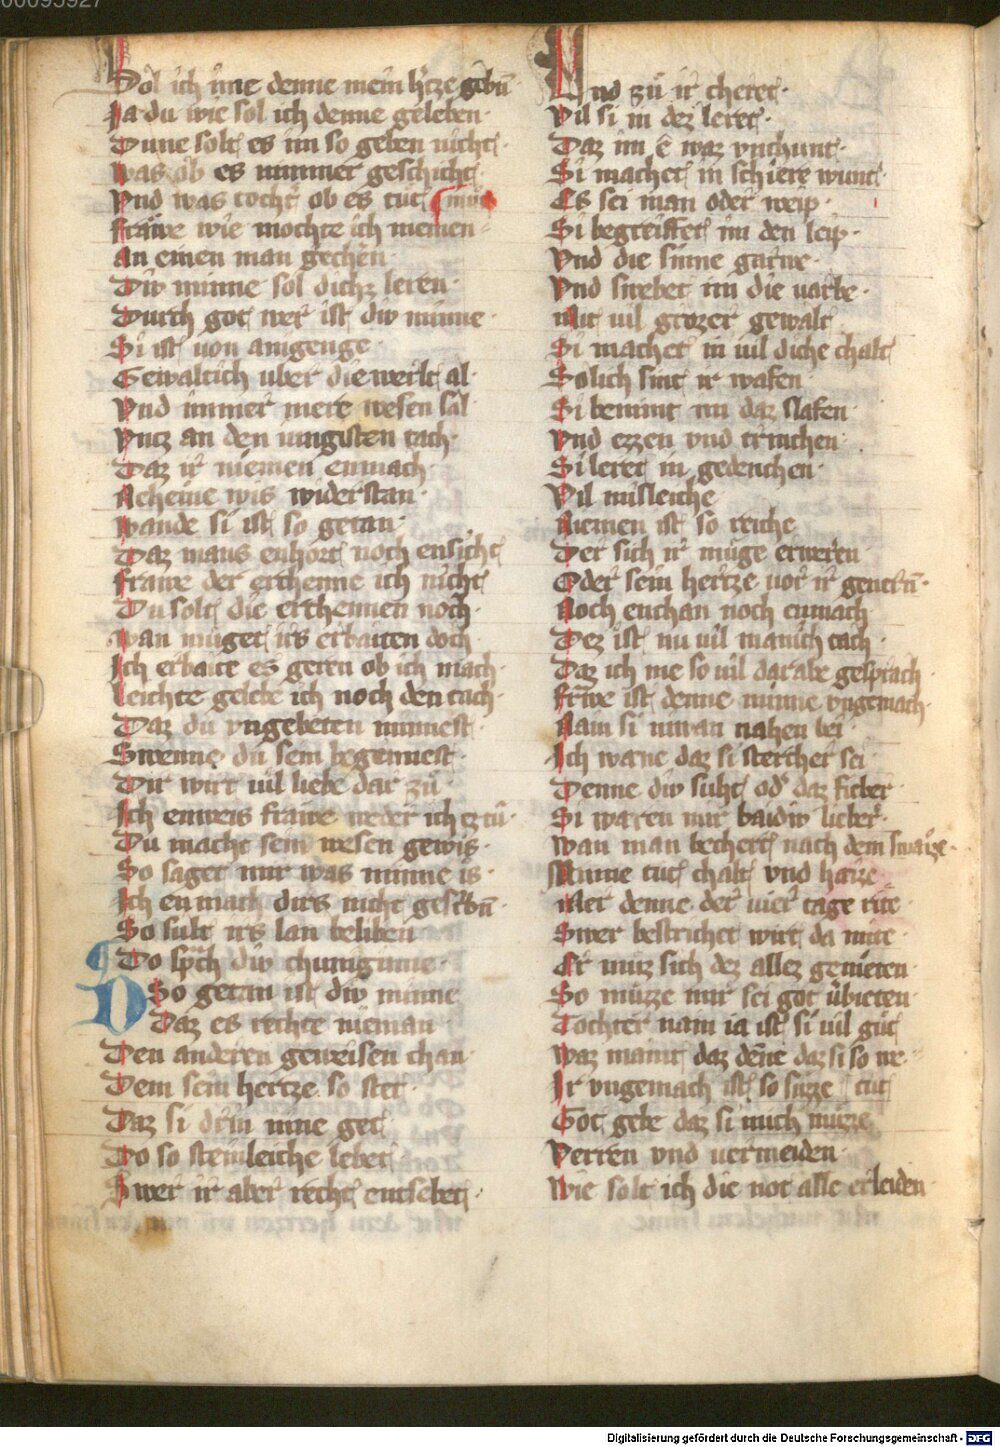 00095927
Sol ich ime denne mein h'tze gebn̄
Ja du wie sol ich denne geleben·
Dune solt es im so geben nicht·
was ob es nimmer geschicht·
Vnd was tocht ob es tut
mir
frawe wie mochte ich meinen
an einen man gechern·
Div minne sol dichz leren·
Durch got wer ist div minne·
Si ist von anigenge·
Gewaltich uber die werlt al·
Vnd immer mere wesen sal
Vntz an den iungisten tach·
Daz ir niemen enmach·
Acheine wis widerstan·
wande si ist so getan·
Daz mans enhort noch ensicht
frawe der erchenne ich nicht
Du solt die erchennen noch·
wan muget irs erbaiten doch·
Ich erbaite es geren ob ich mach·
leichte gelebe ich noch den tach·
Daz du vngebeten minnest·
Swenne du sein beginnest·
Dir wirt vil liebe dar zů·
Ich enweis frawe weder ich tz tů·
Du macht sein wesen gewis·
So saget mir was minne is·
Ich en mach dirs nicht gescribn̄·
So sult irs lan beliben
Do sprach div chuniginne·
So getan ist div minne
Daz es rechte nieman
Den anderen geweisen chan·
Dem sein hertze so stet·
Daz si dr'in nine get
Do so steinleiche lebet·
Swer ir aber recht entsebet·
Vnd zů ir cheret·
Vil si in dez leret·
Daz im ê waz vnchunt·
Si machet in schiere wunt·
Es sei man oder weip·
Si begreiffet im den leip·
Vnd die sinne garwe·
Vnd swebet im die varbe·
Mit vil grozer gewalt
Si machet in vil diche chalt
Solich sint ir wafen
Si benimt im daz slafen·
Vnd ezzen vnd trinchen·
Si leret in gedenchen·
Vil misleiche
Niemen ist so reiche
Der sich ir muge erweren
Oder sein hertze vor ir genern̄·
Noch enchan noch enmach
Dez ist nu vil manich tach
Daz ich nie so vil dar abe gesprach
frawe ist denne minne vngemach·
Nain si niwan nahen bei
Ich wane daz si stercher sei
Denne div suht od' daz fieber
Si waren mir baidiv lieber·
wan man bechert nach dem swaize·
Minne tut chalt vnd haize
Mer denne der vier tage rite
Swer bestrichet wirt da mite
Er můz sich dez allez genieten·
So můzze mir sei got ůbieten·
Tochter nain ia ist si vil gůt
Waz maint daz dēne daz si so we
Ir vngemach ist so sůzze
tut
Got gebe daz si mich můzze
Verren vnd vermeiden·
Wie solt ich die not alle erleiden
Digitalisierung gefördert durch die Deutsche Forschungsgemeinschaft - DFG